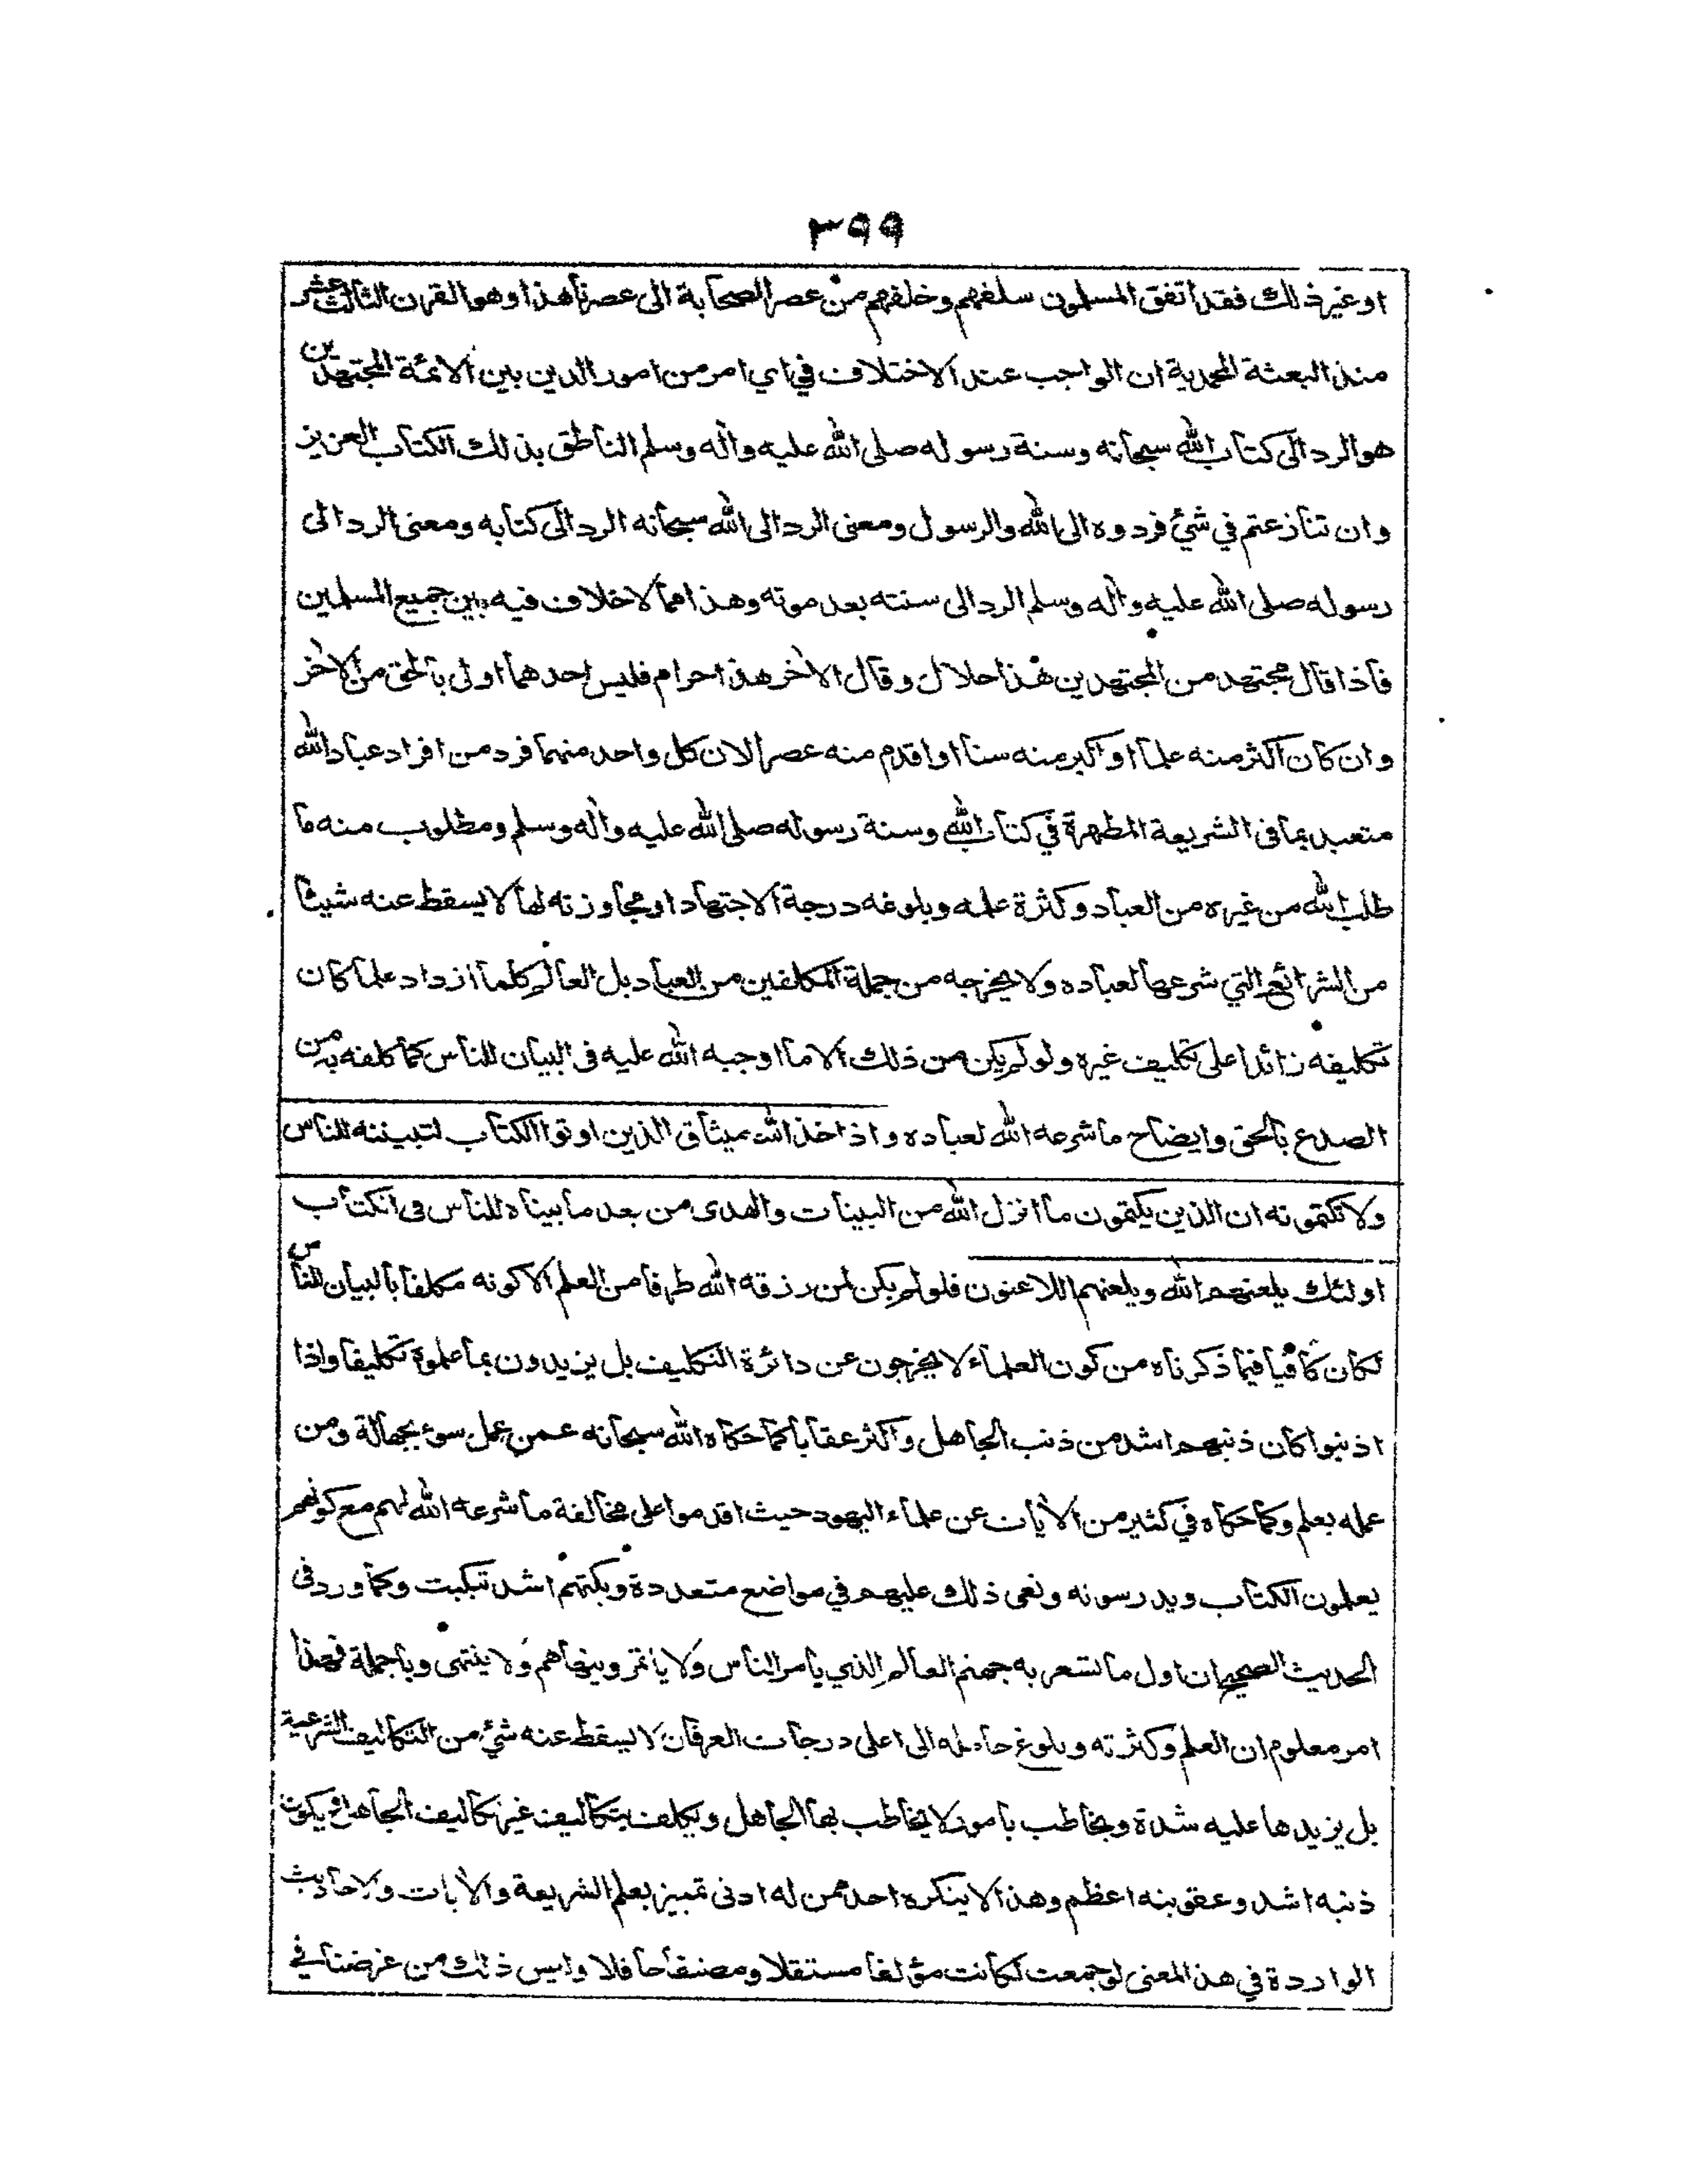 ٣٩٩
او غير ذلك فقد اتفق المسلمون سلفهم وخلفهم من عصر الصحابة الى عصرنا هذا وهو القرن الثالث عشر
منذ البعثة المحمدية ان الواجب عند الاختلاف في اي امر من امور الدين بين الائمة المجتهدين
هو الرد الى كتاب الله سبحانه وسنة رسوله صلى الله عليه واله وسلم الناطق بذلك الكتاب العزيز
وان تنازعتم في شئ فردوه الى الله والرسول ومعنى الرد الى الله سبحانه الرد الى كتابه ومعنى الرد الى
رسوله صلى الله عليه واله وسلم الرد الى سنته بعد موته وهذا مما لا خلاف فيه بين جميع المسلمين
فاذا قال مجتهد من المجتهدين هذا حلال وقال الاخر هذا حرام فليس احدهما اولى بالحق من الاخر
وان كان اكثر منه علما او اكبر منه سنا او اقدم منه عصرا لان كل واحد منهما فرد من افراد عباد الله
متعبد بما فى الشريعة المطهرة في كتاب الله وسنة رسوله صلى الله عليه واله وسلم ومطلوب منه ما
طلب الله من غيره من العباد وكثرة علمه وبلوغه درجة الاجتهاد او مجاوزته لها لا يسقط عنه شيئا
من الشرائع التي شرعها لعباده ولا يخرجه من جملة المكلفين من العباد بل العالم كلما ازداد علما كان
تكليفه زائدا على تكليف غيره ولو لم يكن من ذلك الا ما اوجبه الله عليه فى البيان للناس كما كلفه به من
الصدع بالحق وايضاح ما شرعه الله لعباده واذ اخذ الله ميثاق الذين اوتوا الكتاب لتبيننه للناس
ولا تكتمونه ان الذين يكتمون ما انزل الله من البينات والهدى من بعد ما بيناه للناس فى الكتاب
اولئك يلعنهم الله ويلعنهم اللاعنون فلو لم يكن لمن رزقه الله طرفا من العلم الا كونه مكلفا بالبيان للناس
لكان كافيا فيما ذكرناه من كون العلماء لا يخرجون عن دائرة التكليف بل يزيدون بما علموه تكليفا واذا
اذنبوا كان ذنبهم اشد من ذنب الجاهل واكثر عقابا كما حكاه الله سبحانه عمن عمل سوء بجهالة ومن
عمله بعلم وكما حكاه في كثير من الأيات عن علماء اليهود حيث اقدموا على مخالفة ما شرعه الله لهم مع كونهم
يعلمون الكتاب ويدرسونه ونعى ذلك عليهم في مواضع متعددة وبكتهم اشد تبكيت وكما ورد فى
الحديث الصحيح ان اول ما تسعر به جهنم العالم الذي يأمر الناس ولا يأتمر وينهاهم ولا ينتهى وبالجملة فهذا
امر معلوم ان العلم وكثرته وبلوغ حامله الى اعلى درجات العرفان لا يسقط عنه شئ من التكاليف الشرعية
بل يزيدها عليه شدة ويخاطب بامور لا يخاطب بها الجاهل ويكلف بتكاليف غير تكاليف الجاهل ويكون
ذنبه اشد وعقوبته اعظم وهذا لا ينكره احد ممن له ادنى تمييز بعلم الشريعة والأيات والاحاديث
الواردة في هذا المعنى لو جمعت لكانت مؤلفا مستقلا ومصنفا حافلا وليس ذلك من غرضنا في